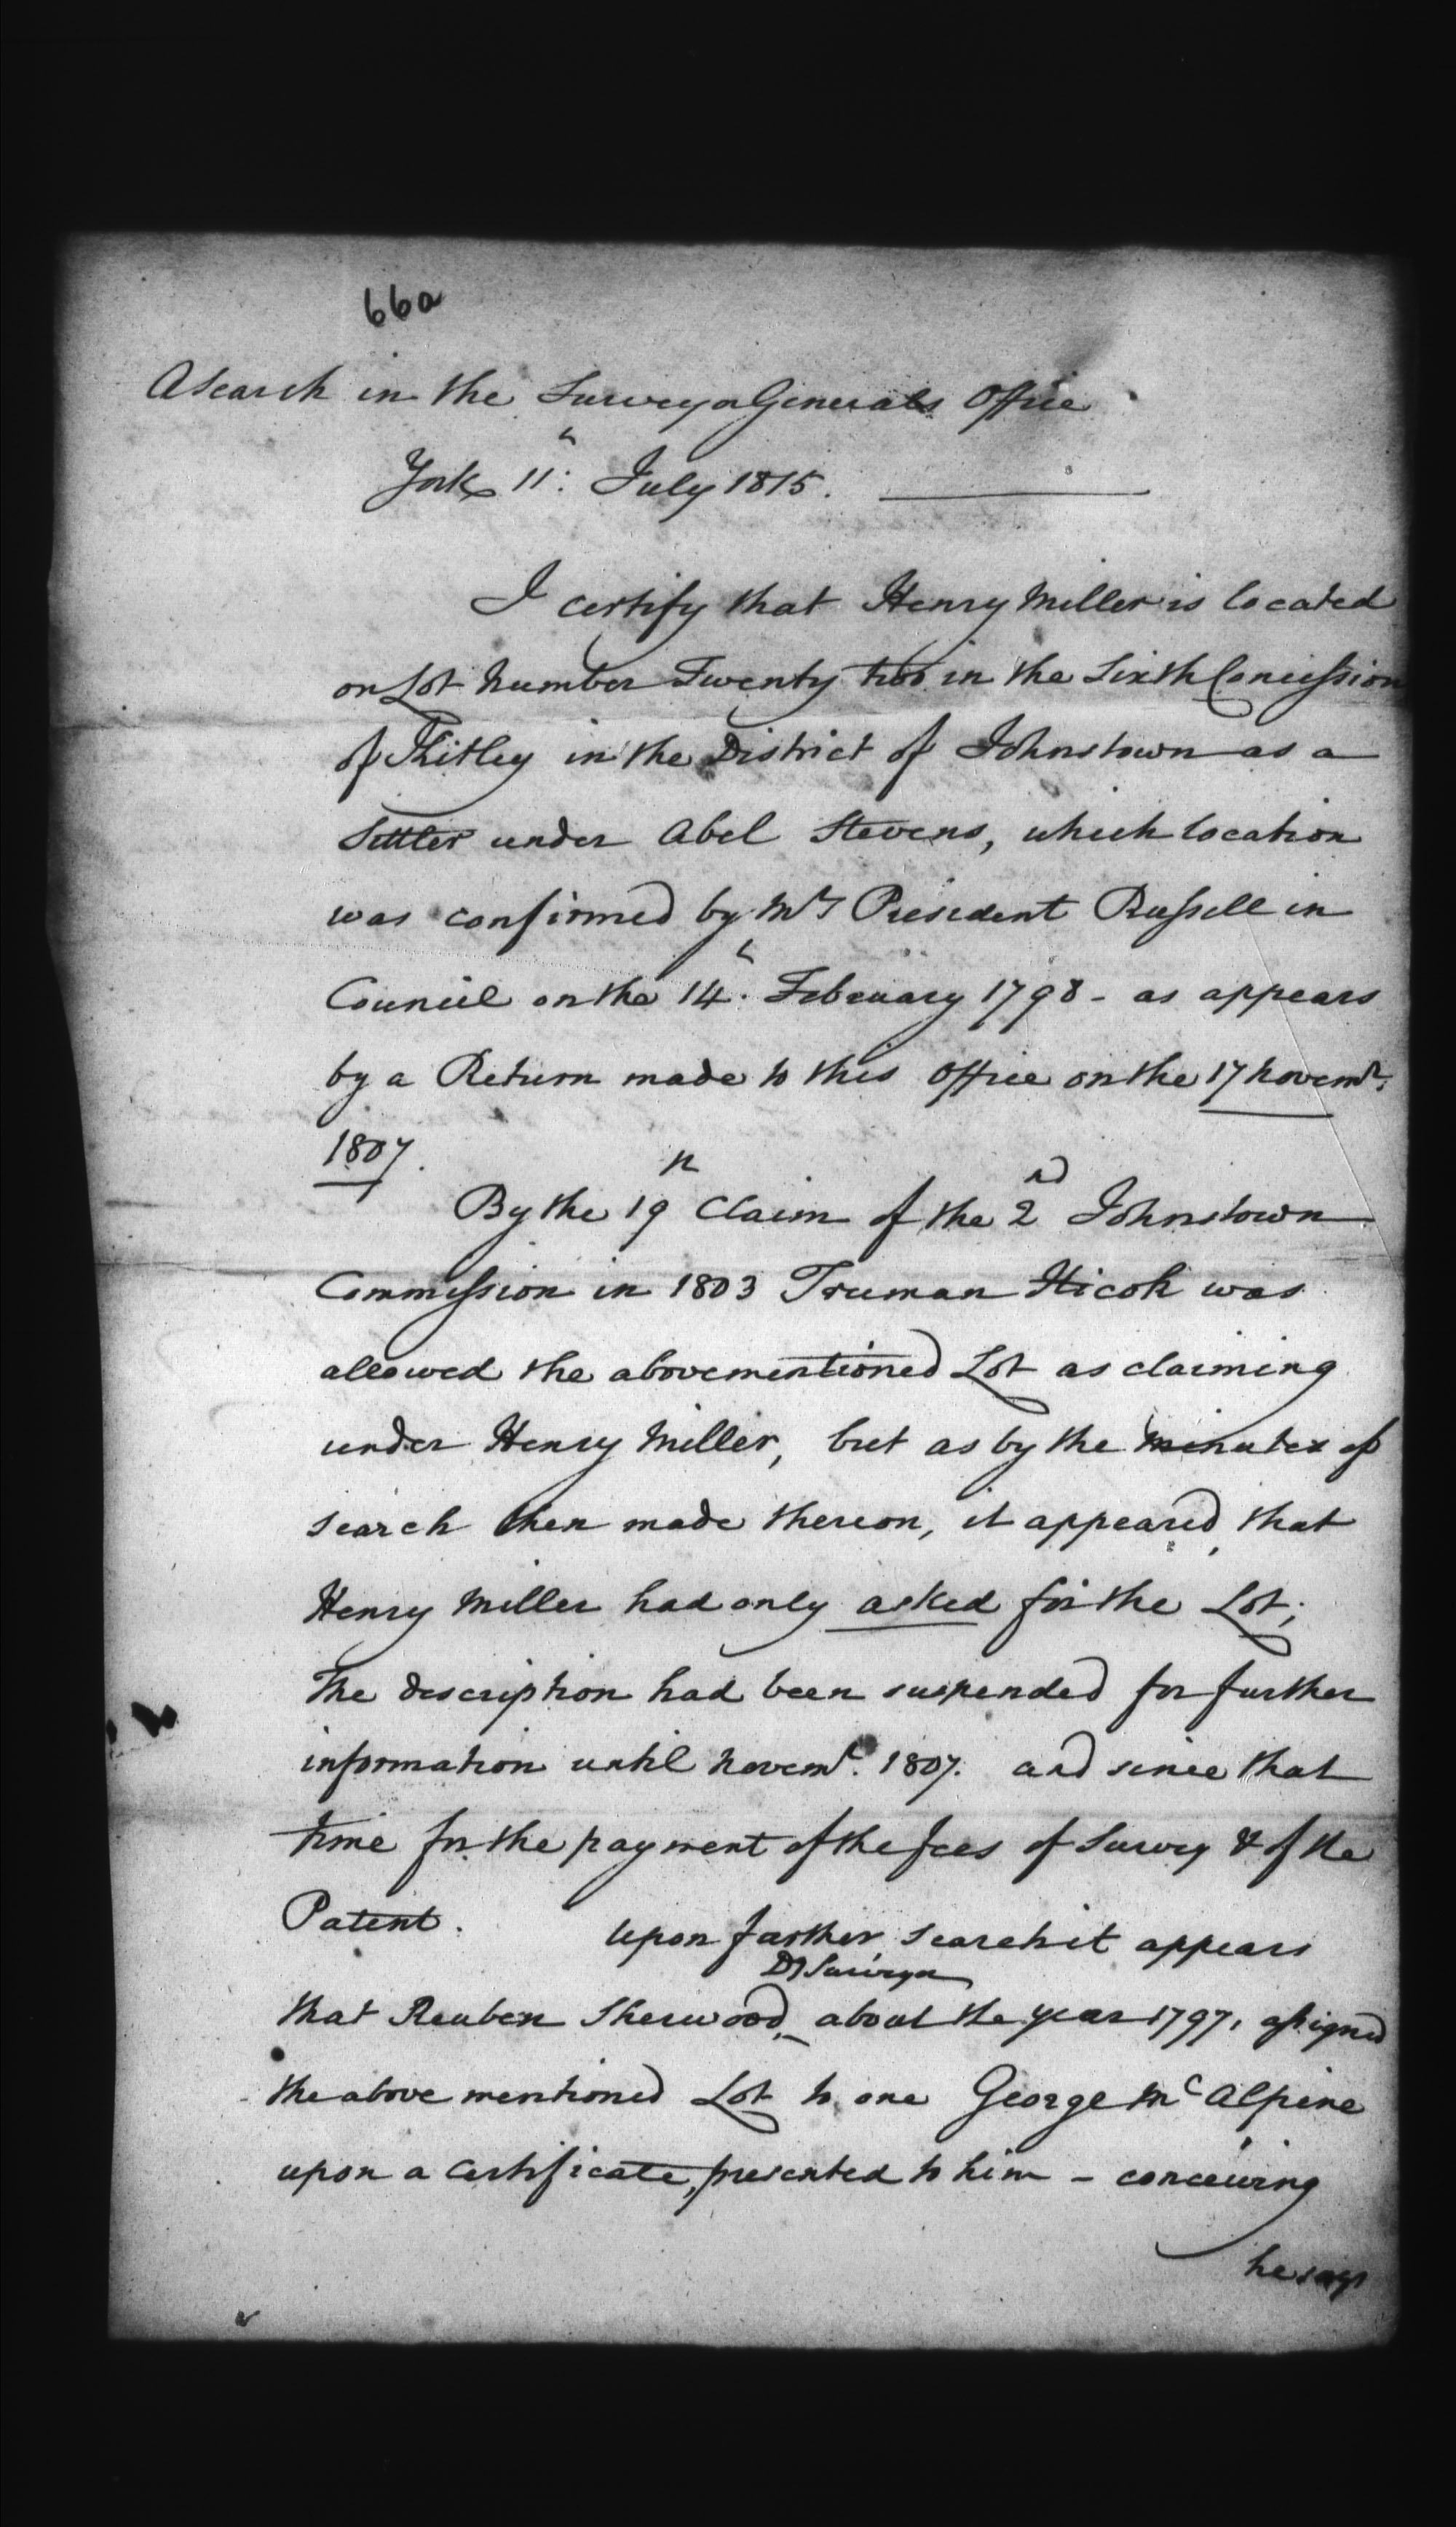 66a
A search in the Surveyor Generals Office
York 11th July 1815.
I certify that Henry Miller is located
on Lot Number Twenty two in the Sixth Concession
of Kitley in the District of Johnstown as a
Settler under Abel Stevens, which location
was confirmed by Mr President Russell in
Council on the 14th February 1798 - as appears
by a Return made to this Office on the 17 Novemr.
1807.
By the 19th Claim of the 2nd Johnstown
Commission in 1803 Truman Hicok was
allowed the abovementioned Lot as claiming
under Henry Miller, but as by the minutes of
search then made thereon, it appeared, that
Henry Miller had only asked for the Lot;
The description had been suspended for further
information until Novemr. 1807. and since that
time for the payment of the fees of Survey & of the
Patent. Upon farther search it appears
Dy Surveyor
that Reuben Sherwood, about the year 1797, assigned
the above mentioned Lot to one George McAlpine
upon a Certificate, presented to him - conceiving
he says